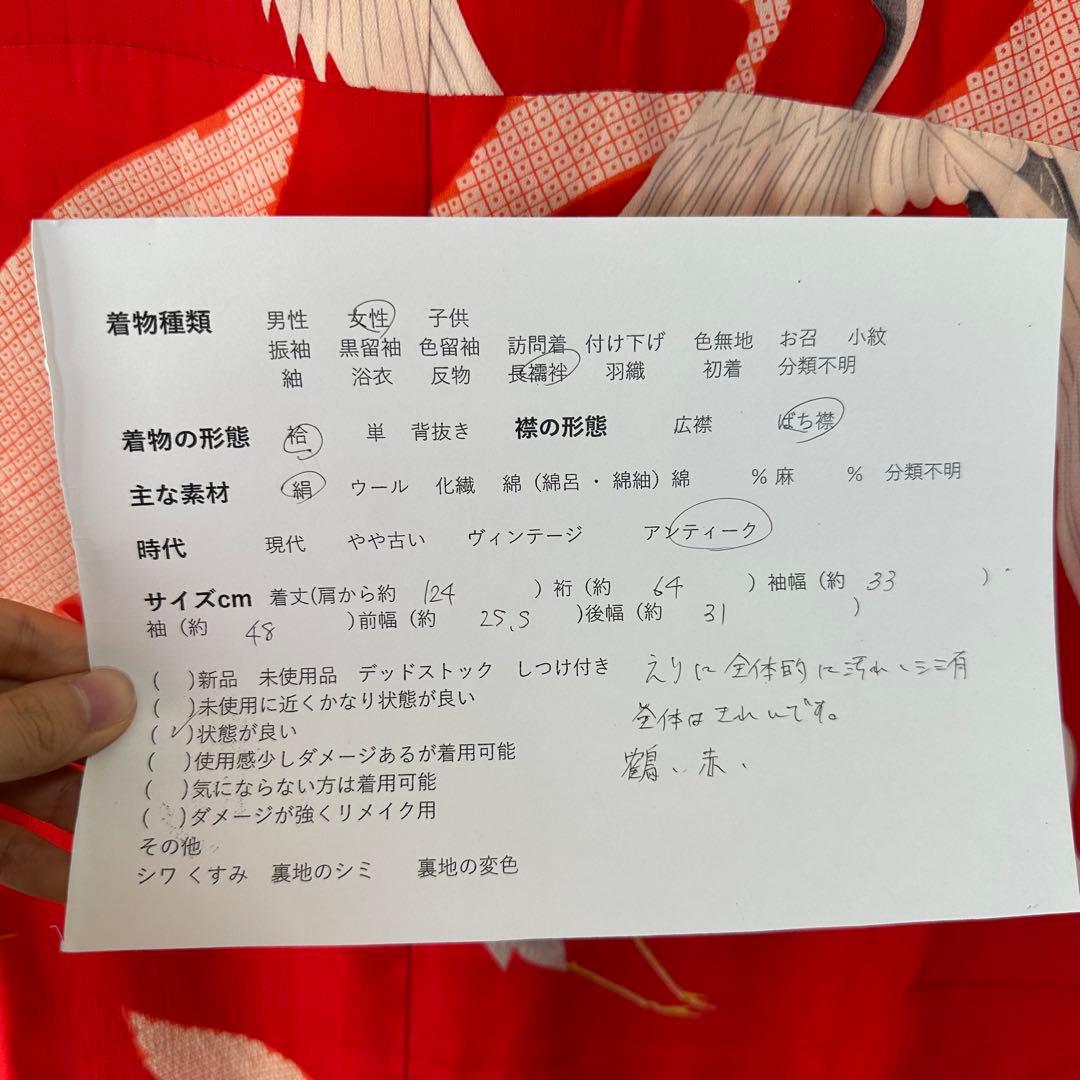 着物種類 男性 女性 子供
振袖 黒留袖 色留袖 訪問着 付け下げ 色無地 お召 小紋
紬 浴衣 反物 長襦袢 羽織 初着 分類不明
着物の形態 袷 単 背抜き 襟の形態 広襟 ばち襟
主な素材 絹 ウール 化繊 綿（綿呂・綿紬）綿 %麻 % 分類不明
時代 現代 やや古い ヴィンテージ アンティーク
サイズcm 着丈(肩から約 124 ）裄（約 64 ）袖幅（約 33 ）
袖（約 48 )前幅（約 25.5 )後幅（約 31 ）
( )新品 未使用品 デッドストック しつけ付き えりに全体的に汚れ、シミ有
( )未使用に近くかなり状態が良い
全体はきれいです。
(✓)状態が良い
( )使用感少しダメージあるが着用可能
鶴、赤、
( )気にならない方は着用可能
( )ダメージが強くリメイク用
その他
シワ くすみ 裏地のシミ 裏地の変色